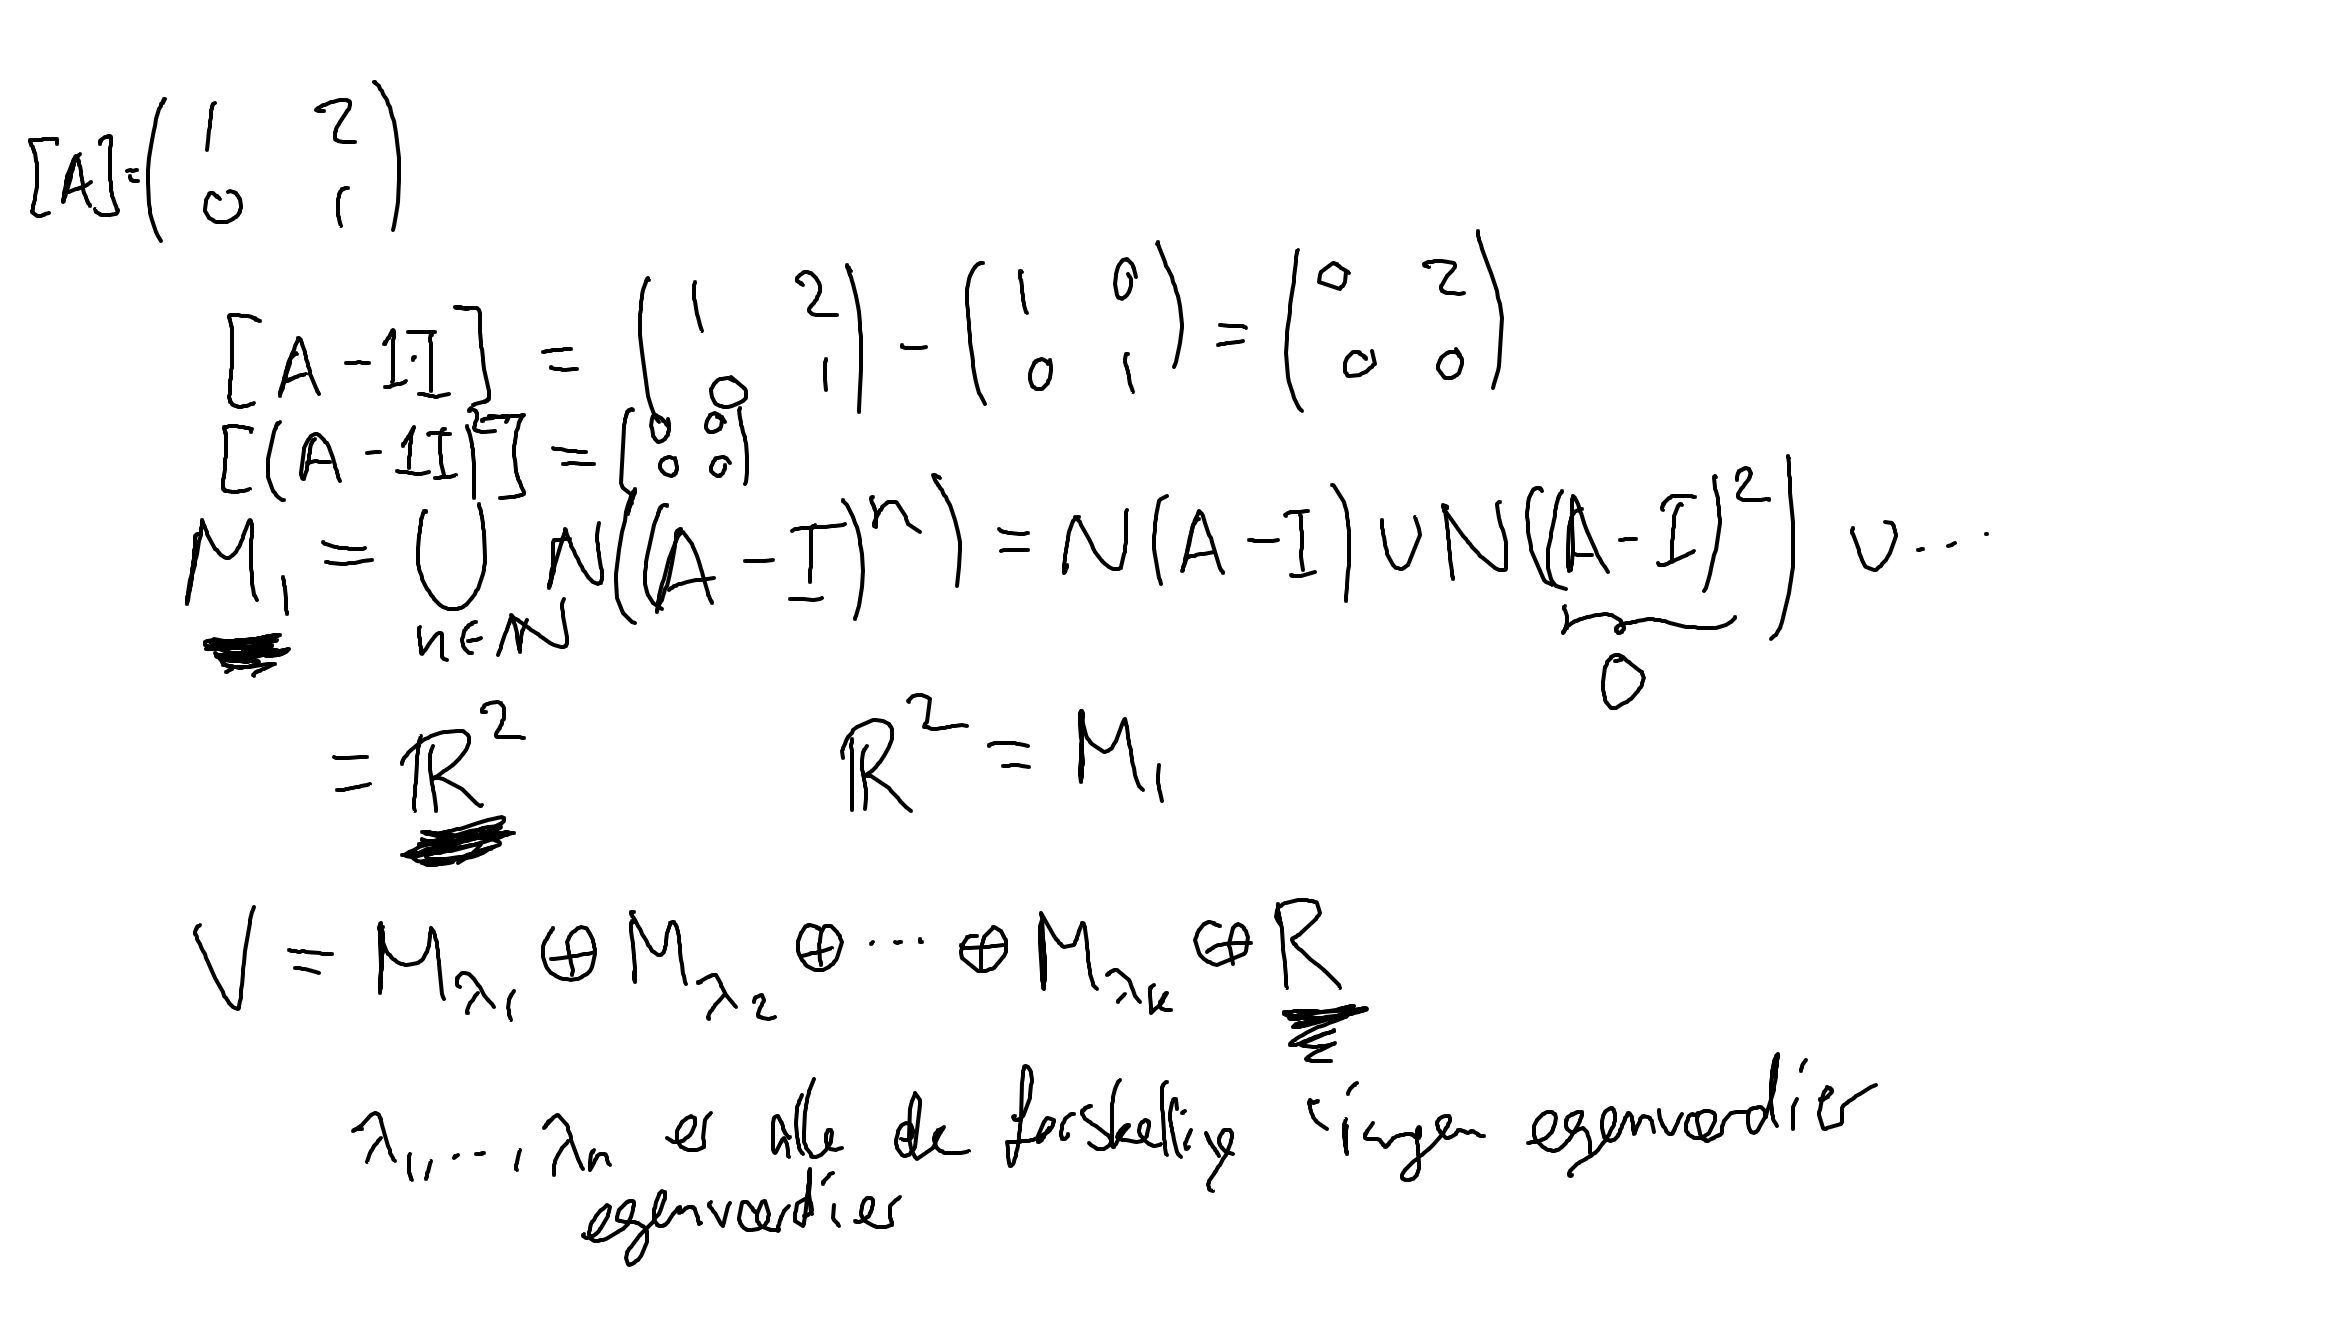 [A] = ( 1 2 0 1 )
[A - 1·I] = ( 1 2 0 1 ) - ( 1 0 0 1 ) = ( 0 2 0 0 )
[(A - 1I)²] = ( 0 0 0 0 )
M₁ = ⋃ N((A - I)ⁿ) = N(A - I) ∪ N((A - I)²) ∪ ...
n∈ℕ
0
= ℝ² ℝ² = M₁
V = M_λ₁ ⊕ M_λ₂ ⊕ ... ⊕ M_λₖ ⊕ R
λ₁, ..., λₙ er alle de forskellige ingen egenværdier
egenværdier